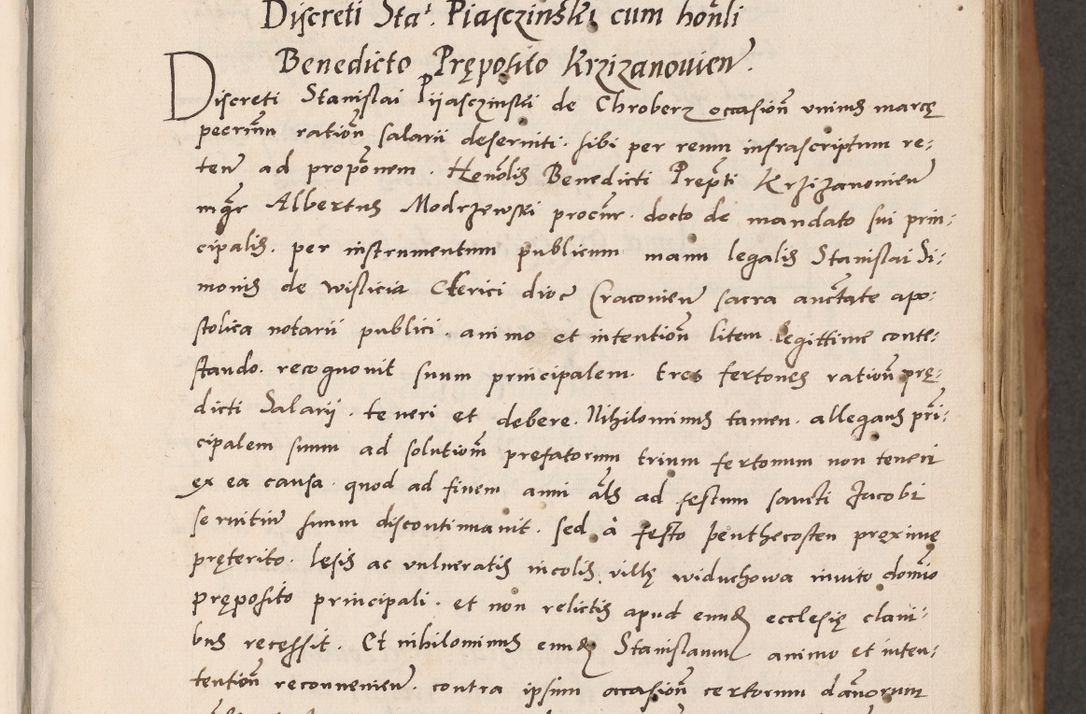 Discreti Sta: Piasczinski cum honli
Benedicto Pręposito Krzizanovien.
Discreti Stanislai Pijasczinski de Chroberz occasion unius marcę
pecrium ration salarii deserviti. sibi per reum infrascriptum re:
ten ad proponem. Henolis Benedicti Prepti Krzizanovien
mgr Albertus Modrzewski procur. docto de mandato sui prin:
cipalis. per instrumentum publicum manu legalis Stanislai Si:
monis de wislicia Clerici dioc Craconien sacra auctate apo:
stolica notarii publici. animo et intention litem legittime conte:
stando. recognovit suum principalem. tres fertones ration prę:
dicti Salarij. teneri et debere. Nihilominus tamen. allegans pri:
cipalem suum ad solutiom prefatorum trium fertonum non teneri
ex ea causa. quod ad finem anni als ad festum sancti Jacobi
servitium suum discontinuavit. sed à festo penthecosten proxime
pręterito. lesis ac vulneratis incolis villę widuchowa invito domio
pręposito principali. et non relictis apud eund ecclesię clavi:
bus recessit. Et nihilominus eund Stanislaum animo et inten:
tention reconvenien. contra ipsum occasion certorum damnorum